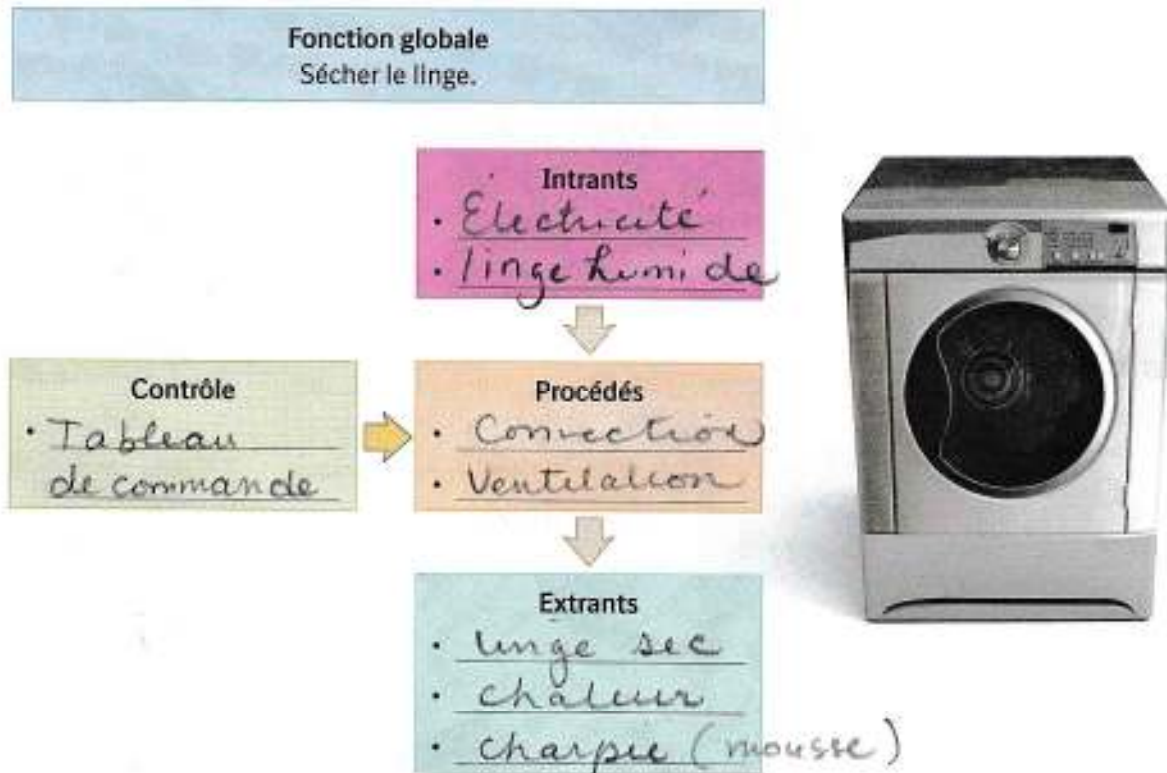 Fonction globale
Sécher le linge.
Intrants
• Électricité
• linge humide
Contrôle
• Tableau
de commande
Procédés
• Convection
• Ventilation
Extrants
• linge sec
• chaleur
• charpie (mousse)